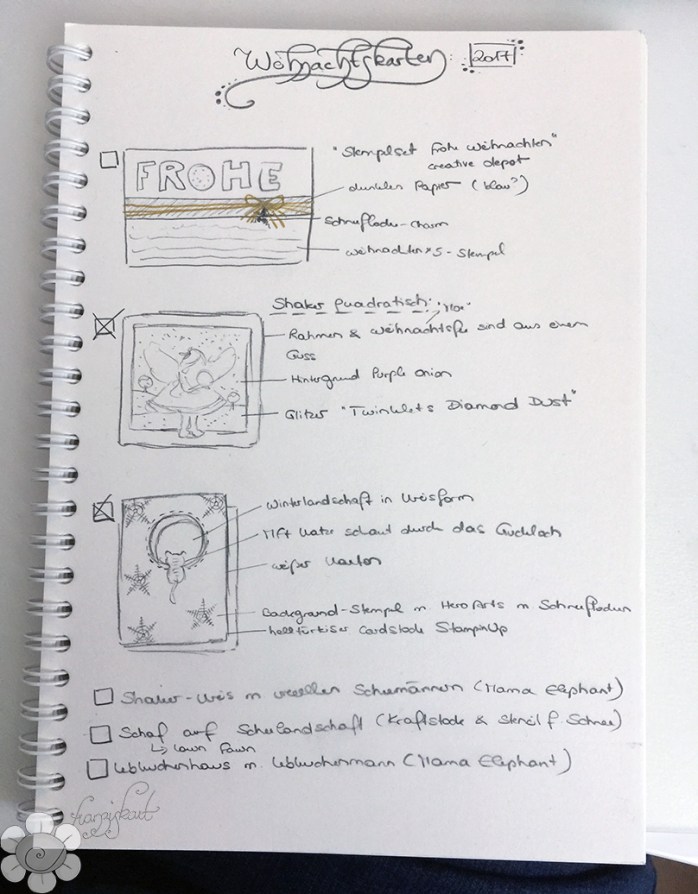 Weihnachtskarten 2017
"Stempelset Frohe Weihnachten"
creative depot
FROHE
dunkles Papier (blau?)
Schneeflocken-Charm
Weihnachten 5-Stempel
Shaker Quadratisch:
Rahmen & Weihnachtsfee sind aus einem
Guss
Hintergrund Purple Onion
Glitzer "Twinklets Diamond Dust"
Winterlandschaft in Kreisform
MFT Katze schaut durch das Guckloch
weißer Karton
Background-Stempel v. Hero Arts m. Schneeflocken
helltürkiser Cardstock StampinUp
Shaker-Kreis m. Schneemännern (Mama Elephant)
Schaf auf Schneelandschaft (Kraftstock & Stencil f. Schnee)
↳ Lawn Fawn
Lebkuchenhaus m. Lebkuchenmann (Mama Elephant)